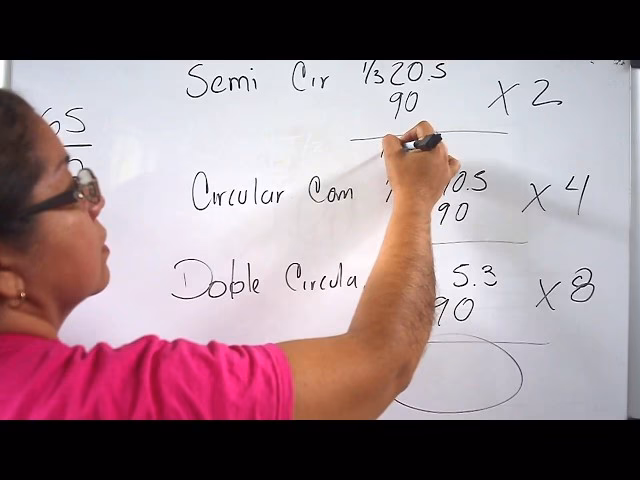 Semi Cir 1/3 20.5
90
X 2
65
Circular Com 10.5
90
X 4
Doble Circula 5.3
90
X 8